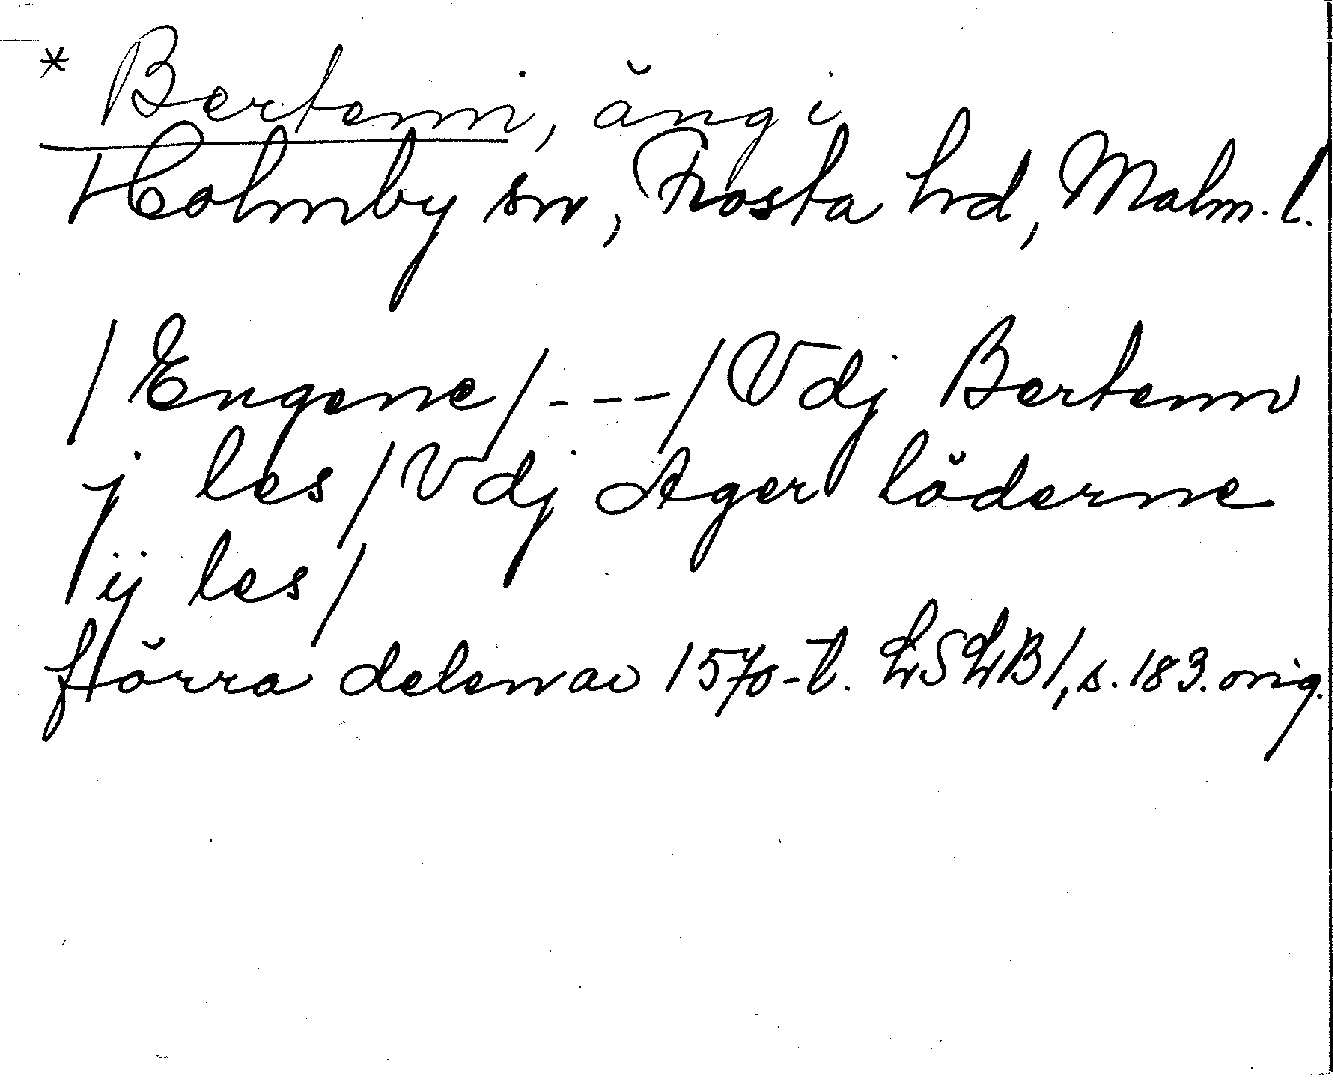 * Bertenn, äng i
Holmby sn, Frosta hd, Malm. l.
/ Engene / - - - / Vdj Bertenn
j les / Vdj Ager löderne
ij les /
förra delen av 1570-t. LSLB1, s. 183. orig.